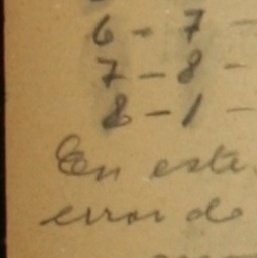 6 - 7 -
7 - 8 -
8 - 1 -
En este
error do